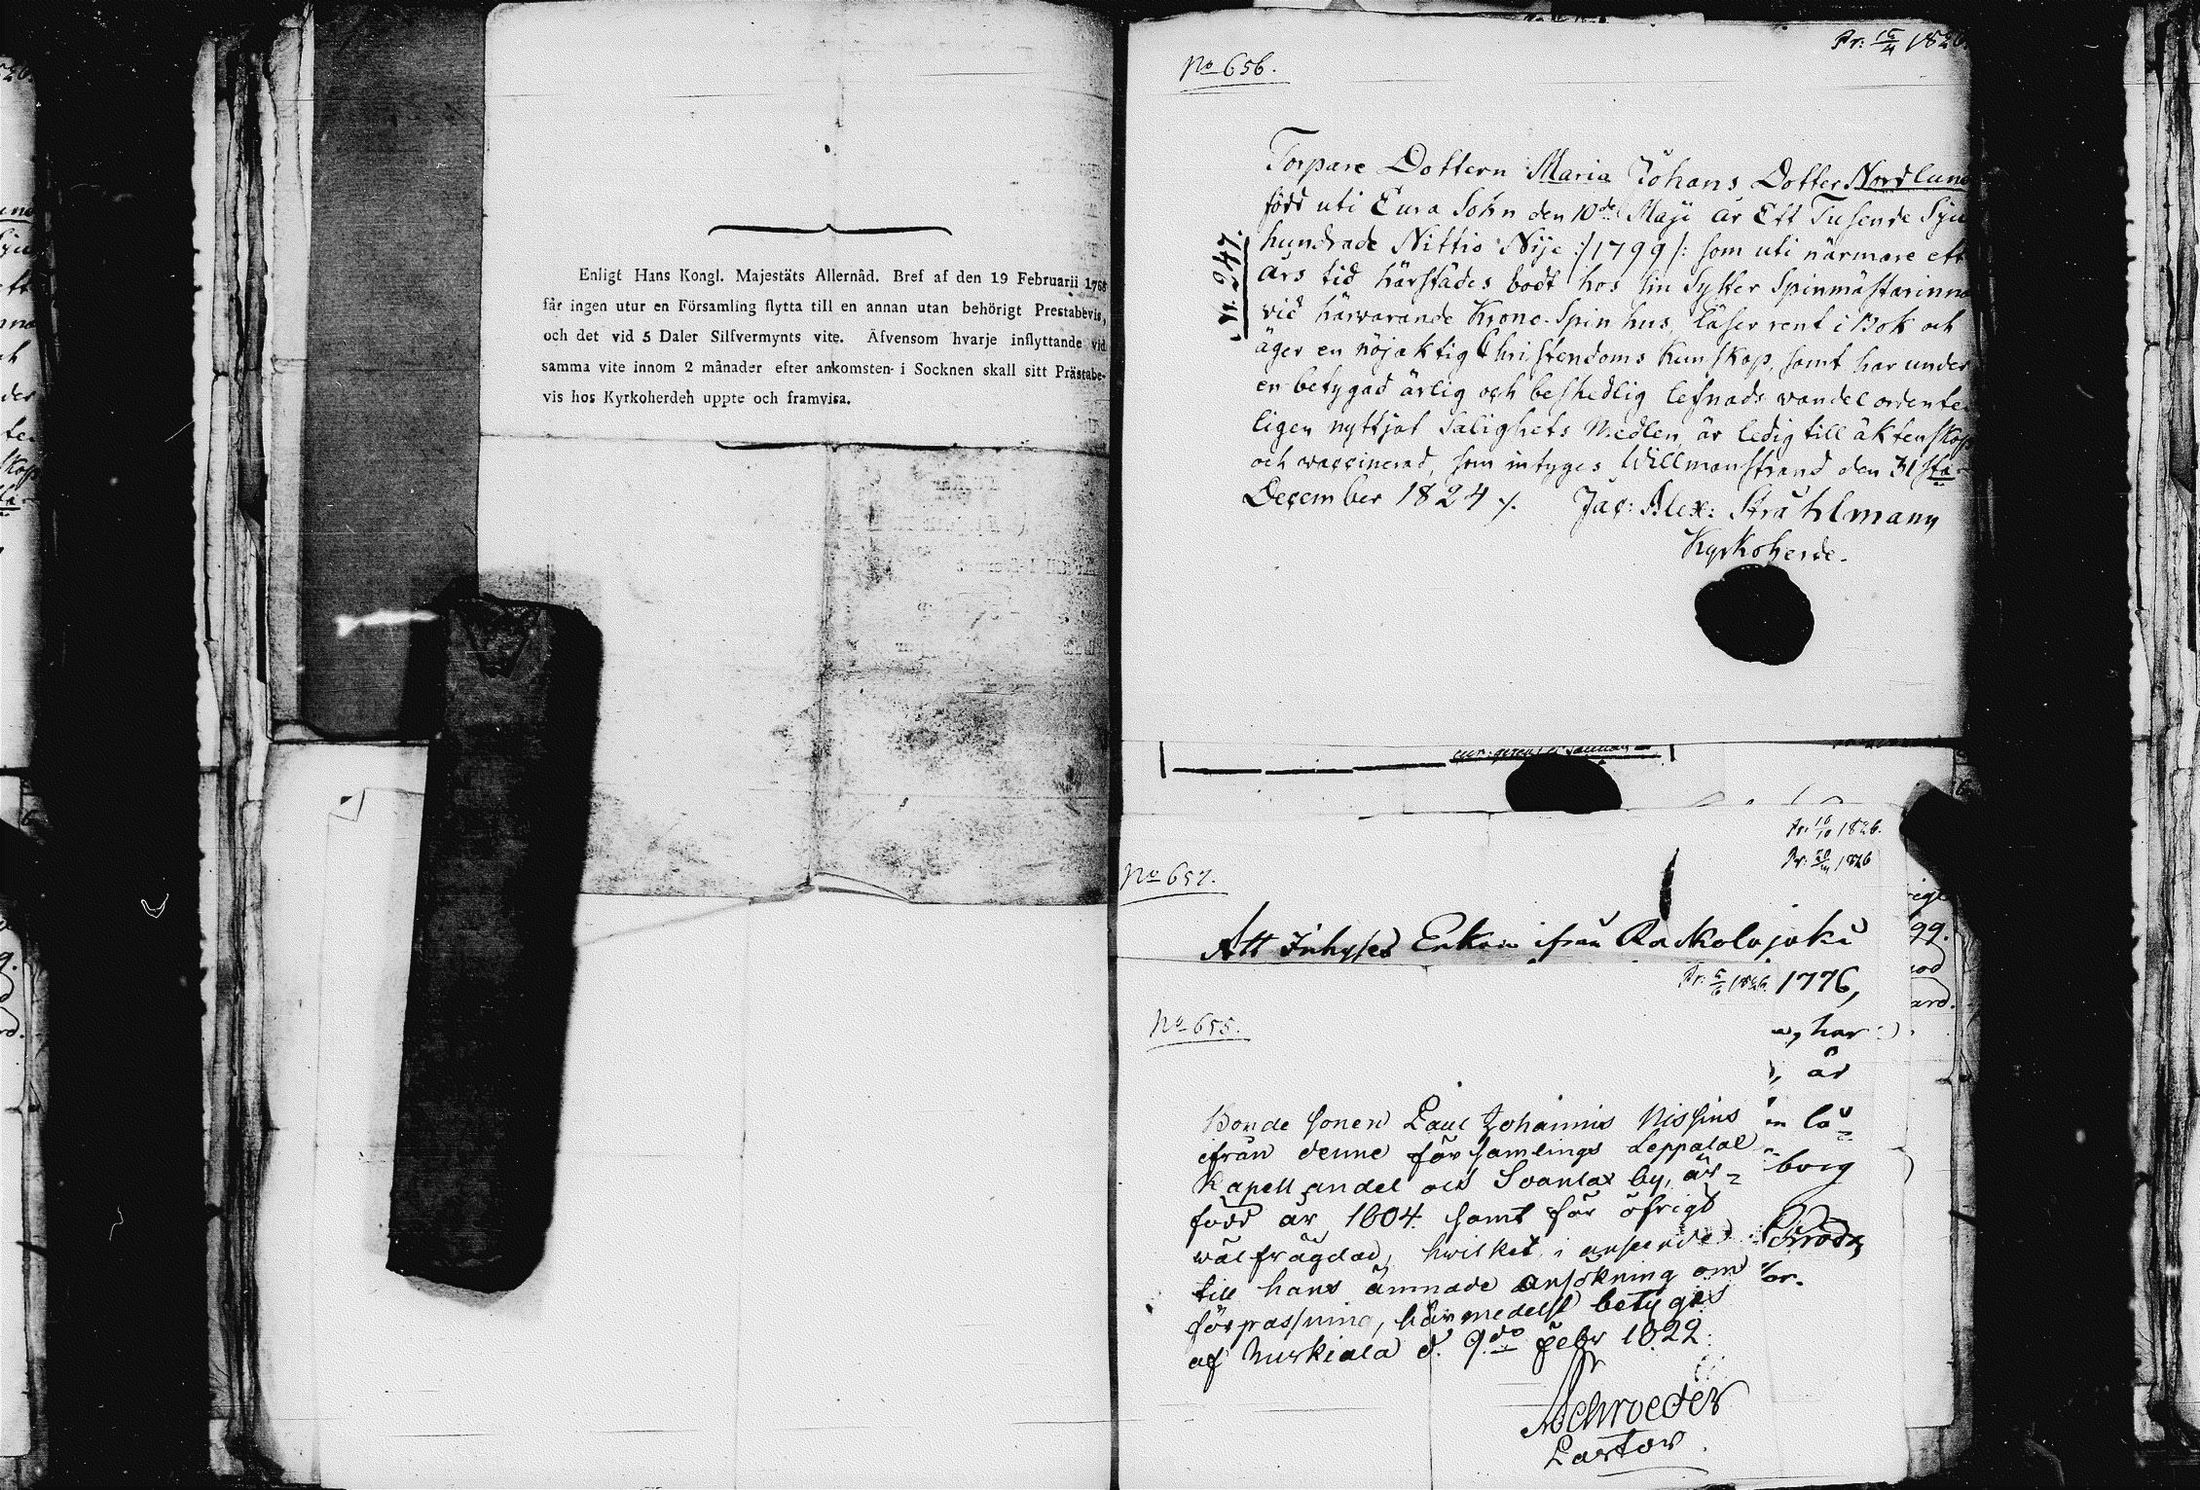 Enligt Hans Kongl. Majestäts Allernåd. Bref af den 19 Februarii 1768
får ingen utur en Församling flytta till en annan utan behörigt Prestabevis,
och det vid 5 Daler Silfvermynts vite. Äfvensom hvarje inflyttande vid
samma vite innom 2 månader efter ankomsten i Socknen skall sitt Prästabe-
vis hos Kyrkoherden uppte och framvisa.
No 656.
Pr: 1826
n. 247.
Torpare Dottern Maria Johans Dotter Nordlund
född uti Eura Sokn den 10de Maji år Ett Tusende Sju
hundrade Nittio Nije :/1799/: som uti närmare ett
års tid härstädes bodt hos sin Syster Spinmästarinna
vid härvarande Krono-Spinhus, läser rent i Bok och
äger en nöjaktig Christendoms Kunskap, samt har under
en betygad ärlig och beskedlig lefnads vandel ordente
ligen nyttjat Salighets Medlen, är ledig till äktenskap
och vaccinerad, som intygas Willmanstrand den 31sta
December 1824 ⁒. Jac: Alex: Stråhlmann
Kyrkoherde.
Pr. 16/10 1826.
Pr. 1826
No 657.
Att Inhyses Enkan ifrån Raskolajoki
Pr. 5/6 1826. 1776,
har
No 655.
är
Bonde Sonen Paul Johannis Nissins
ifrån denne församlings Leppälal
Kapell andel och Svanlax by, är
född år 1804 samt för öfrigt
välfrägdad, hvilket i anseende
till hans ämnade ansökning om
förpassning, härmedelst betygas
af Nurkiala d. 9de Febr 1822.
borg
Schroeder
Pastor.